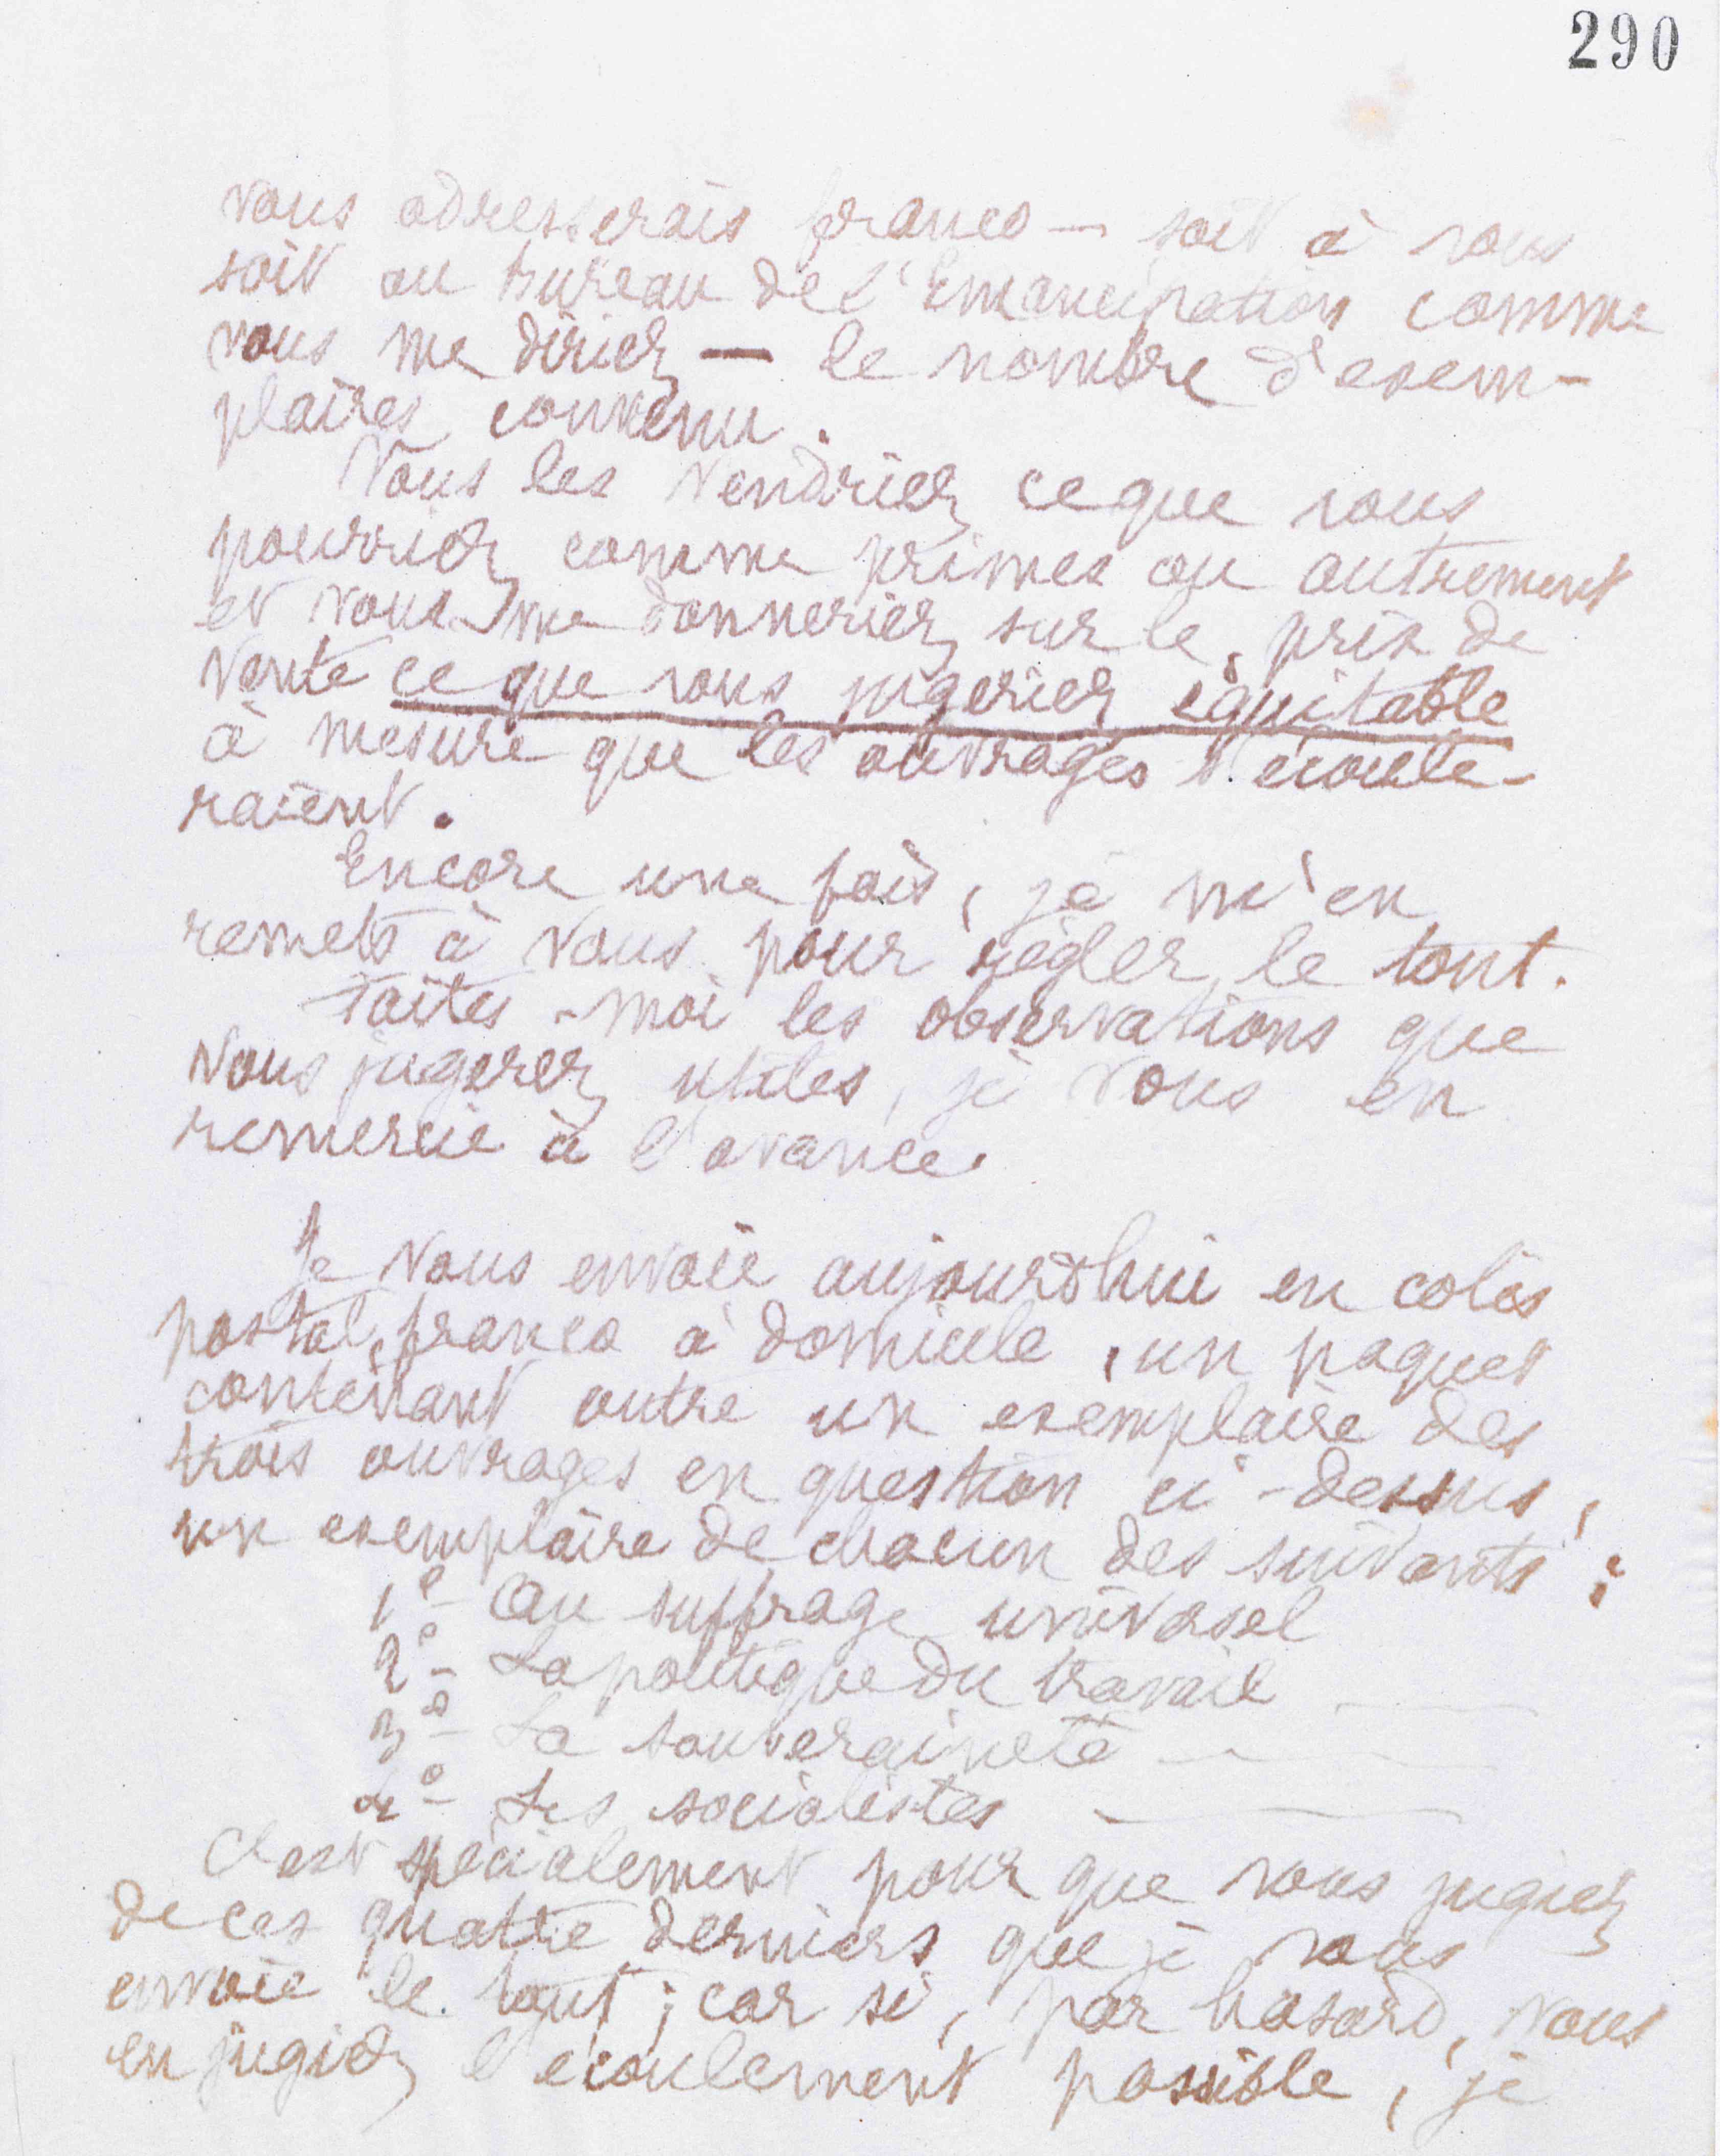 290
vous adresserais franco — soit à vous
soit au bureau de l'Emancipation comme
vous me diriez — le nombre d'exem-
plaires convenu.
Vous les vendriez ce que vous
pourriez comme primes ou autrement
et vous me donneriez sur le prix de
vente ce que vous jugeriez équitable
à mesure que les ouvrages s'écoule-
raient.
Encore une fois, je m'en
remets à vous pour régler le tout.
Faites-moi les observations que
vous jugerez utiles, je vous en
remercie à l'avance.
Je vous envoie aujourd'hui en colis
postal, franco à domicile, un paquet
contenant outre un exemplaire des
trois ouvrages en question ci-dessus,
un exemplaire de chacun des suivants :
1° - Au suffrage universel
2° - La politique du travail
3° - La souveraineté —
4° - Les socialistes —
C'est spécialement pour que vous jugiez
de ces quatre derniers que je vous
envoie le tout ; car si, par hasard, vous
en jugiez l'écoulement possible, je